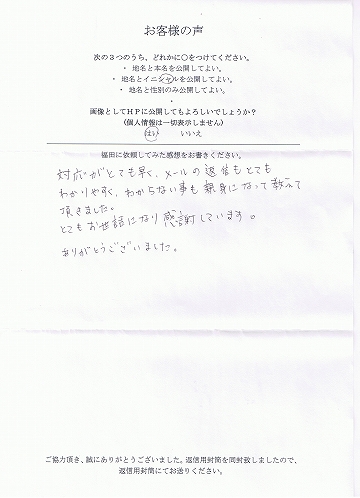 お客様の声
次の３つのうち、どれかに○をつけてください。
・ 地名と本名を公開してよい。
・ 地名とイニシャルを公開してよい。
・ 地名と性別のみ公開してよい。
・
画像としてＨＰに公開してもよろしいでしょうか？
（個人情報は一切表示しません）
はい いいえ
福田に依頼してみた感想をお書きください。
対応がとても早く、メールの返信もとても
わかりやすく、わからない事も親身になって教えて
頂きました。
とてもお世話になり感謝しています。
ありがとうございました。
ご協力頂き、誠にありがとうございました。返信用封筒を同封致しましたので、
返信用封筒にてお送りください。